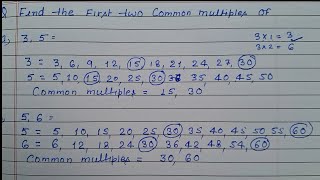 Q Find the First two Common multiples of
1, 3, 5 =
3×1 = 3
3×2 = 6
3 = 3, 6, 9, 12, 15, 18, 21, 24, 27, 30
5 = 5, 10, 15, 20, 25, 30, 35, 40, 45, 50
Common multiples = 15, 30
5, 6 =
5 = 5, 10, 15, 20, 25, 30, 35, 40, 45, 50, 55, 60
6 = 6, 12, 18, 24, 30, 36, 42, 48, 54, 60
Common multiples = 30, 60